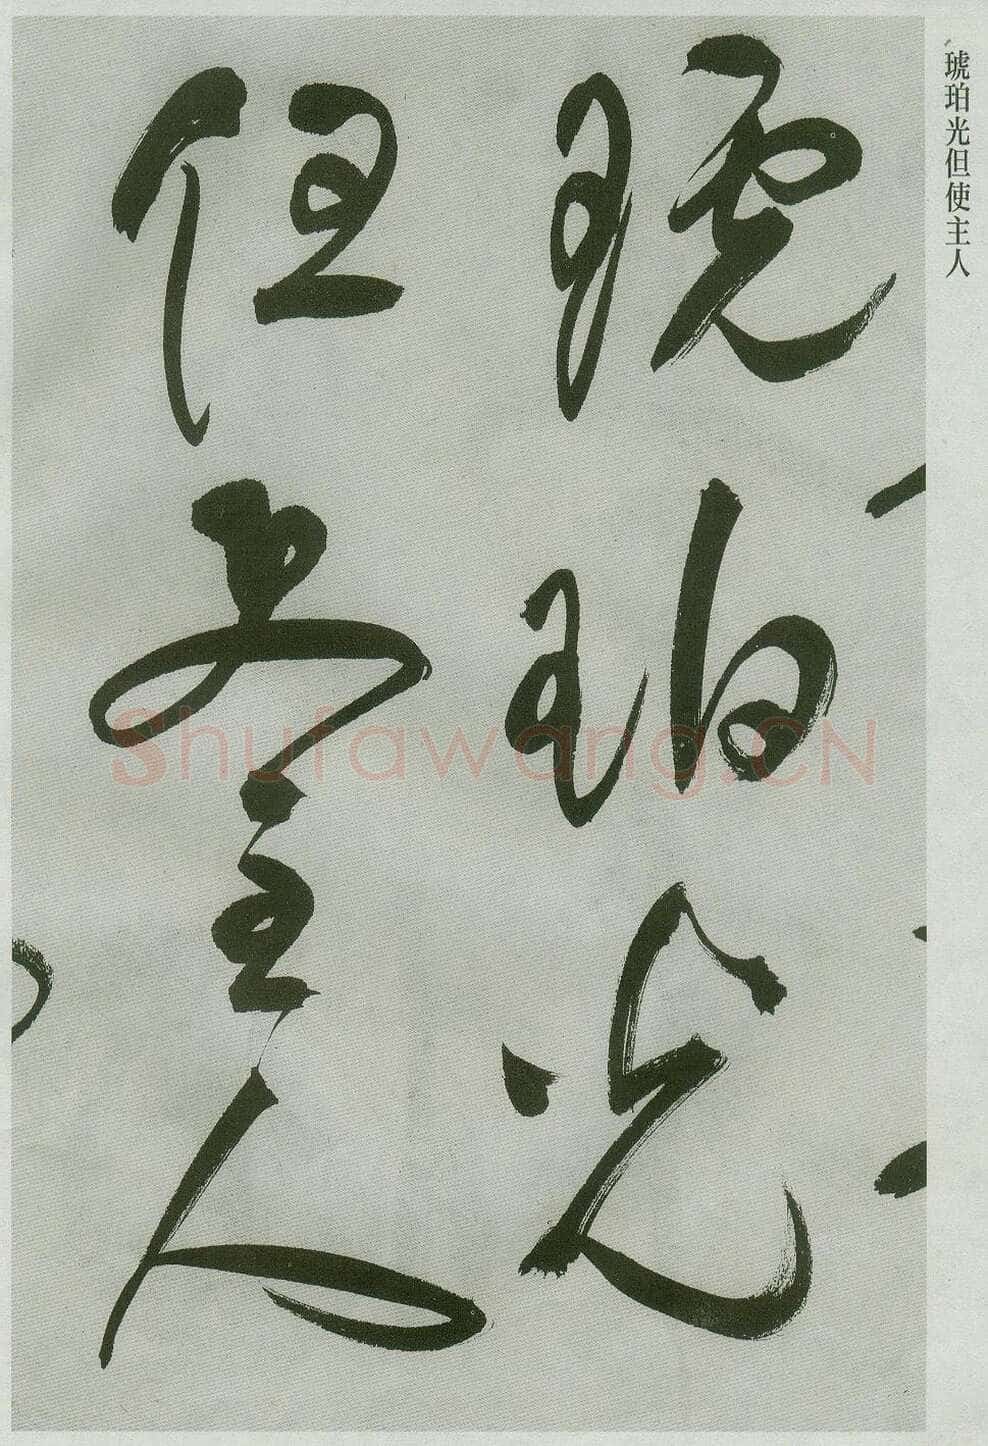 琥珀光但使主人
琥珀光
但使主人
Shufawang.CN